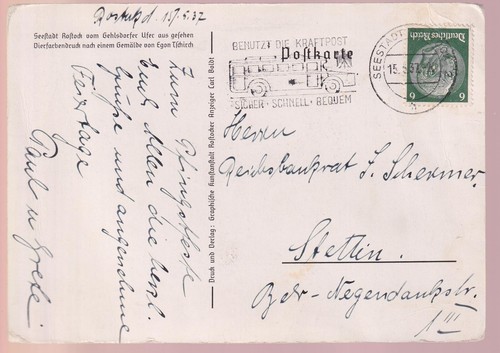 Rostock d. 15.5.37
Seestadt Rostock vom Gehlsdorfer Ufer aus gesehen
Vierfarbendruck nach einem Gemälde von Egon Tschirch
Zum Pfingstfeste
Euch Allen die herzl.
Grüße und angenehme
Festtage
Paul u Grete.
Druck und Verlag: Graphische Kunstanstalt Rostocker Anzeiger Carl Boldt
BENUTZT DIE KRAFTPOST
SICHER · SCHNELL · BEQUEM
Postkarte
SEESTADT
15.5.37
Deutsches Reich
6 6
Herrn
Reichsbankrat J. Schermer.
Stettin.
Bedr-Negendankstr.
1 III